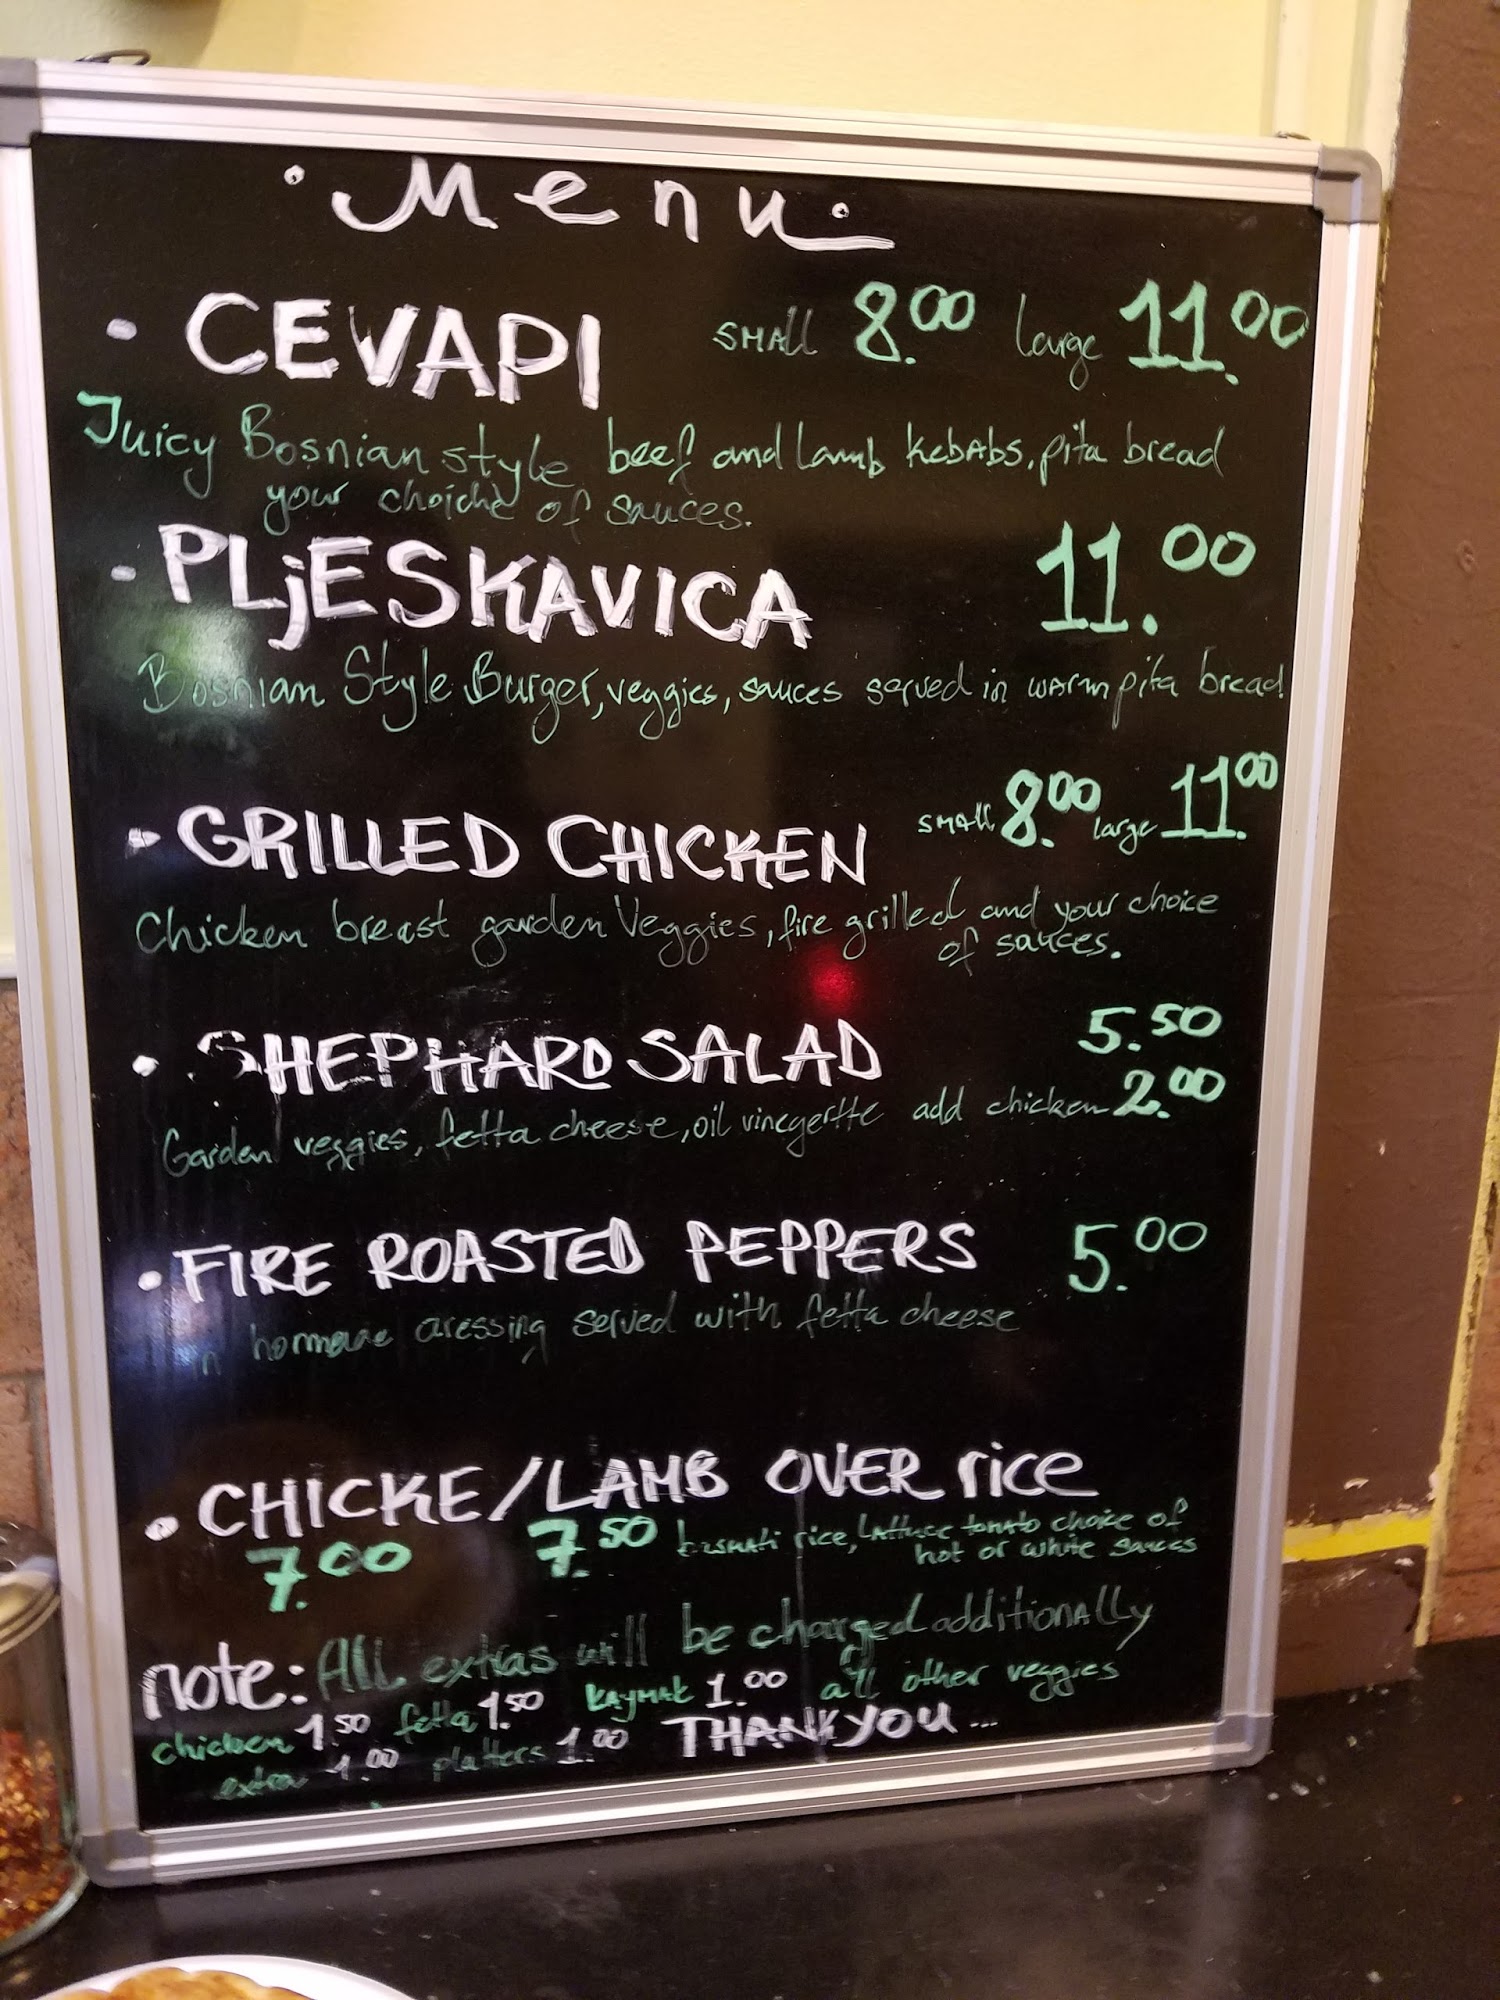 • Menu •
• CEVAPI small 8.00 large 11.00
Juicy Bosnian style beef and lamb kebabs, pita bread
your choiche of sauces.
• PLjESKAVICA 11.00
Bosnian Style Burger, veggies, sauces served in warm pita bread
• GRILLED CHICKEN small 8.00 large 11.00
Chicken breast garden veggies, fire grilled and your choice
of sauces.
• SHEPHARD SALAD 5.50
Garden veggies, fetta cheese, oil vinegertte add chicken 2.00
• FIRE ROASTED PEPPERS 5.00
in dressing served with fetta cheese
• CHICKE/LAMB OVER rice
7.00 7.50 basmati rice, lattuce tomato choice of
hot or white sauces
note: All extras will be charged additionally
chicken 1.50 fetta 1.50 kaymak 1.00 all other veggies
extra 1.00 platters 1.00 THANK YOU...